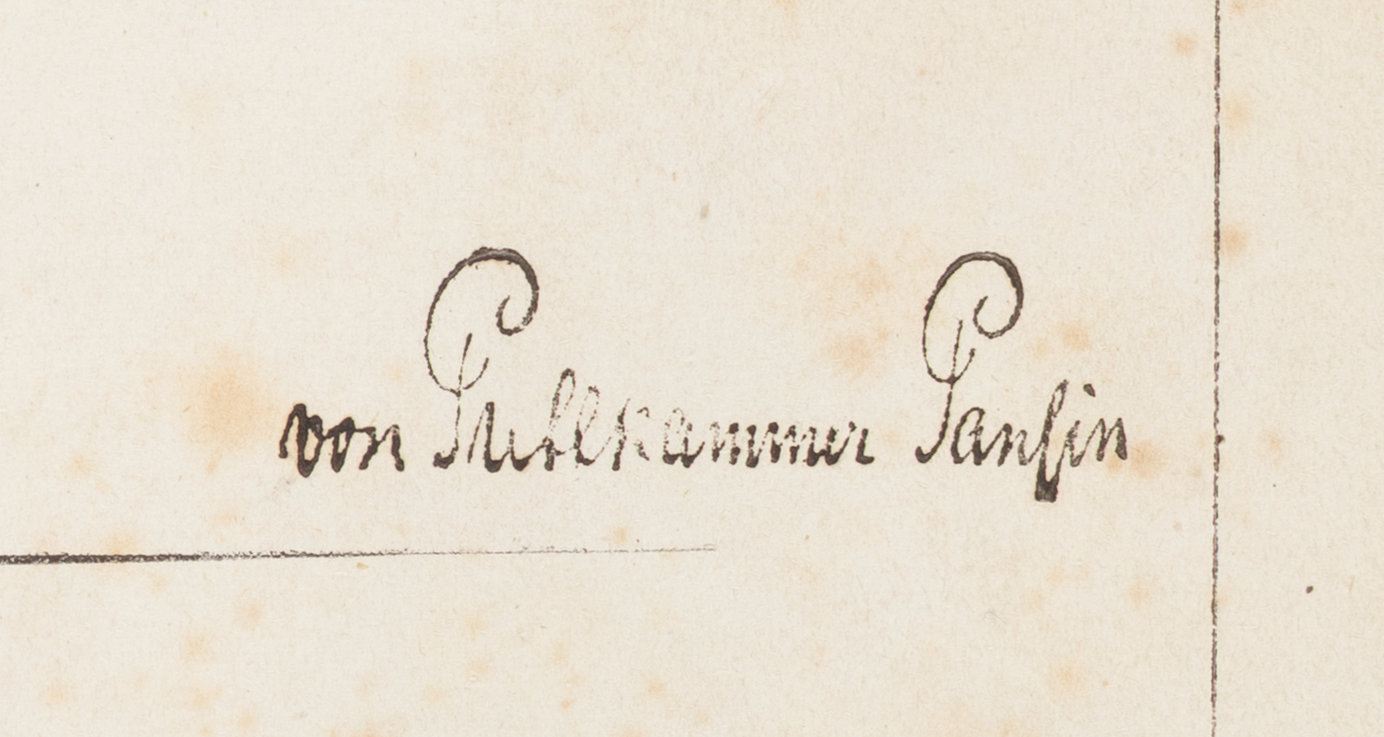 von Puttkammer Pansin